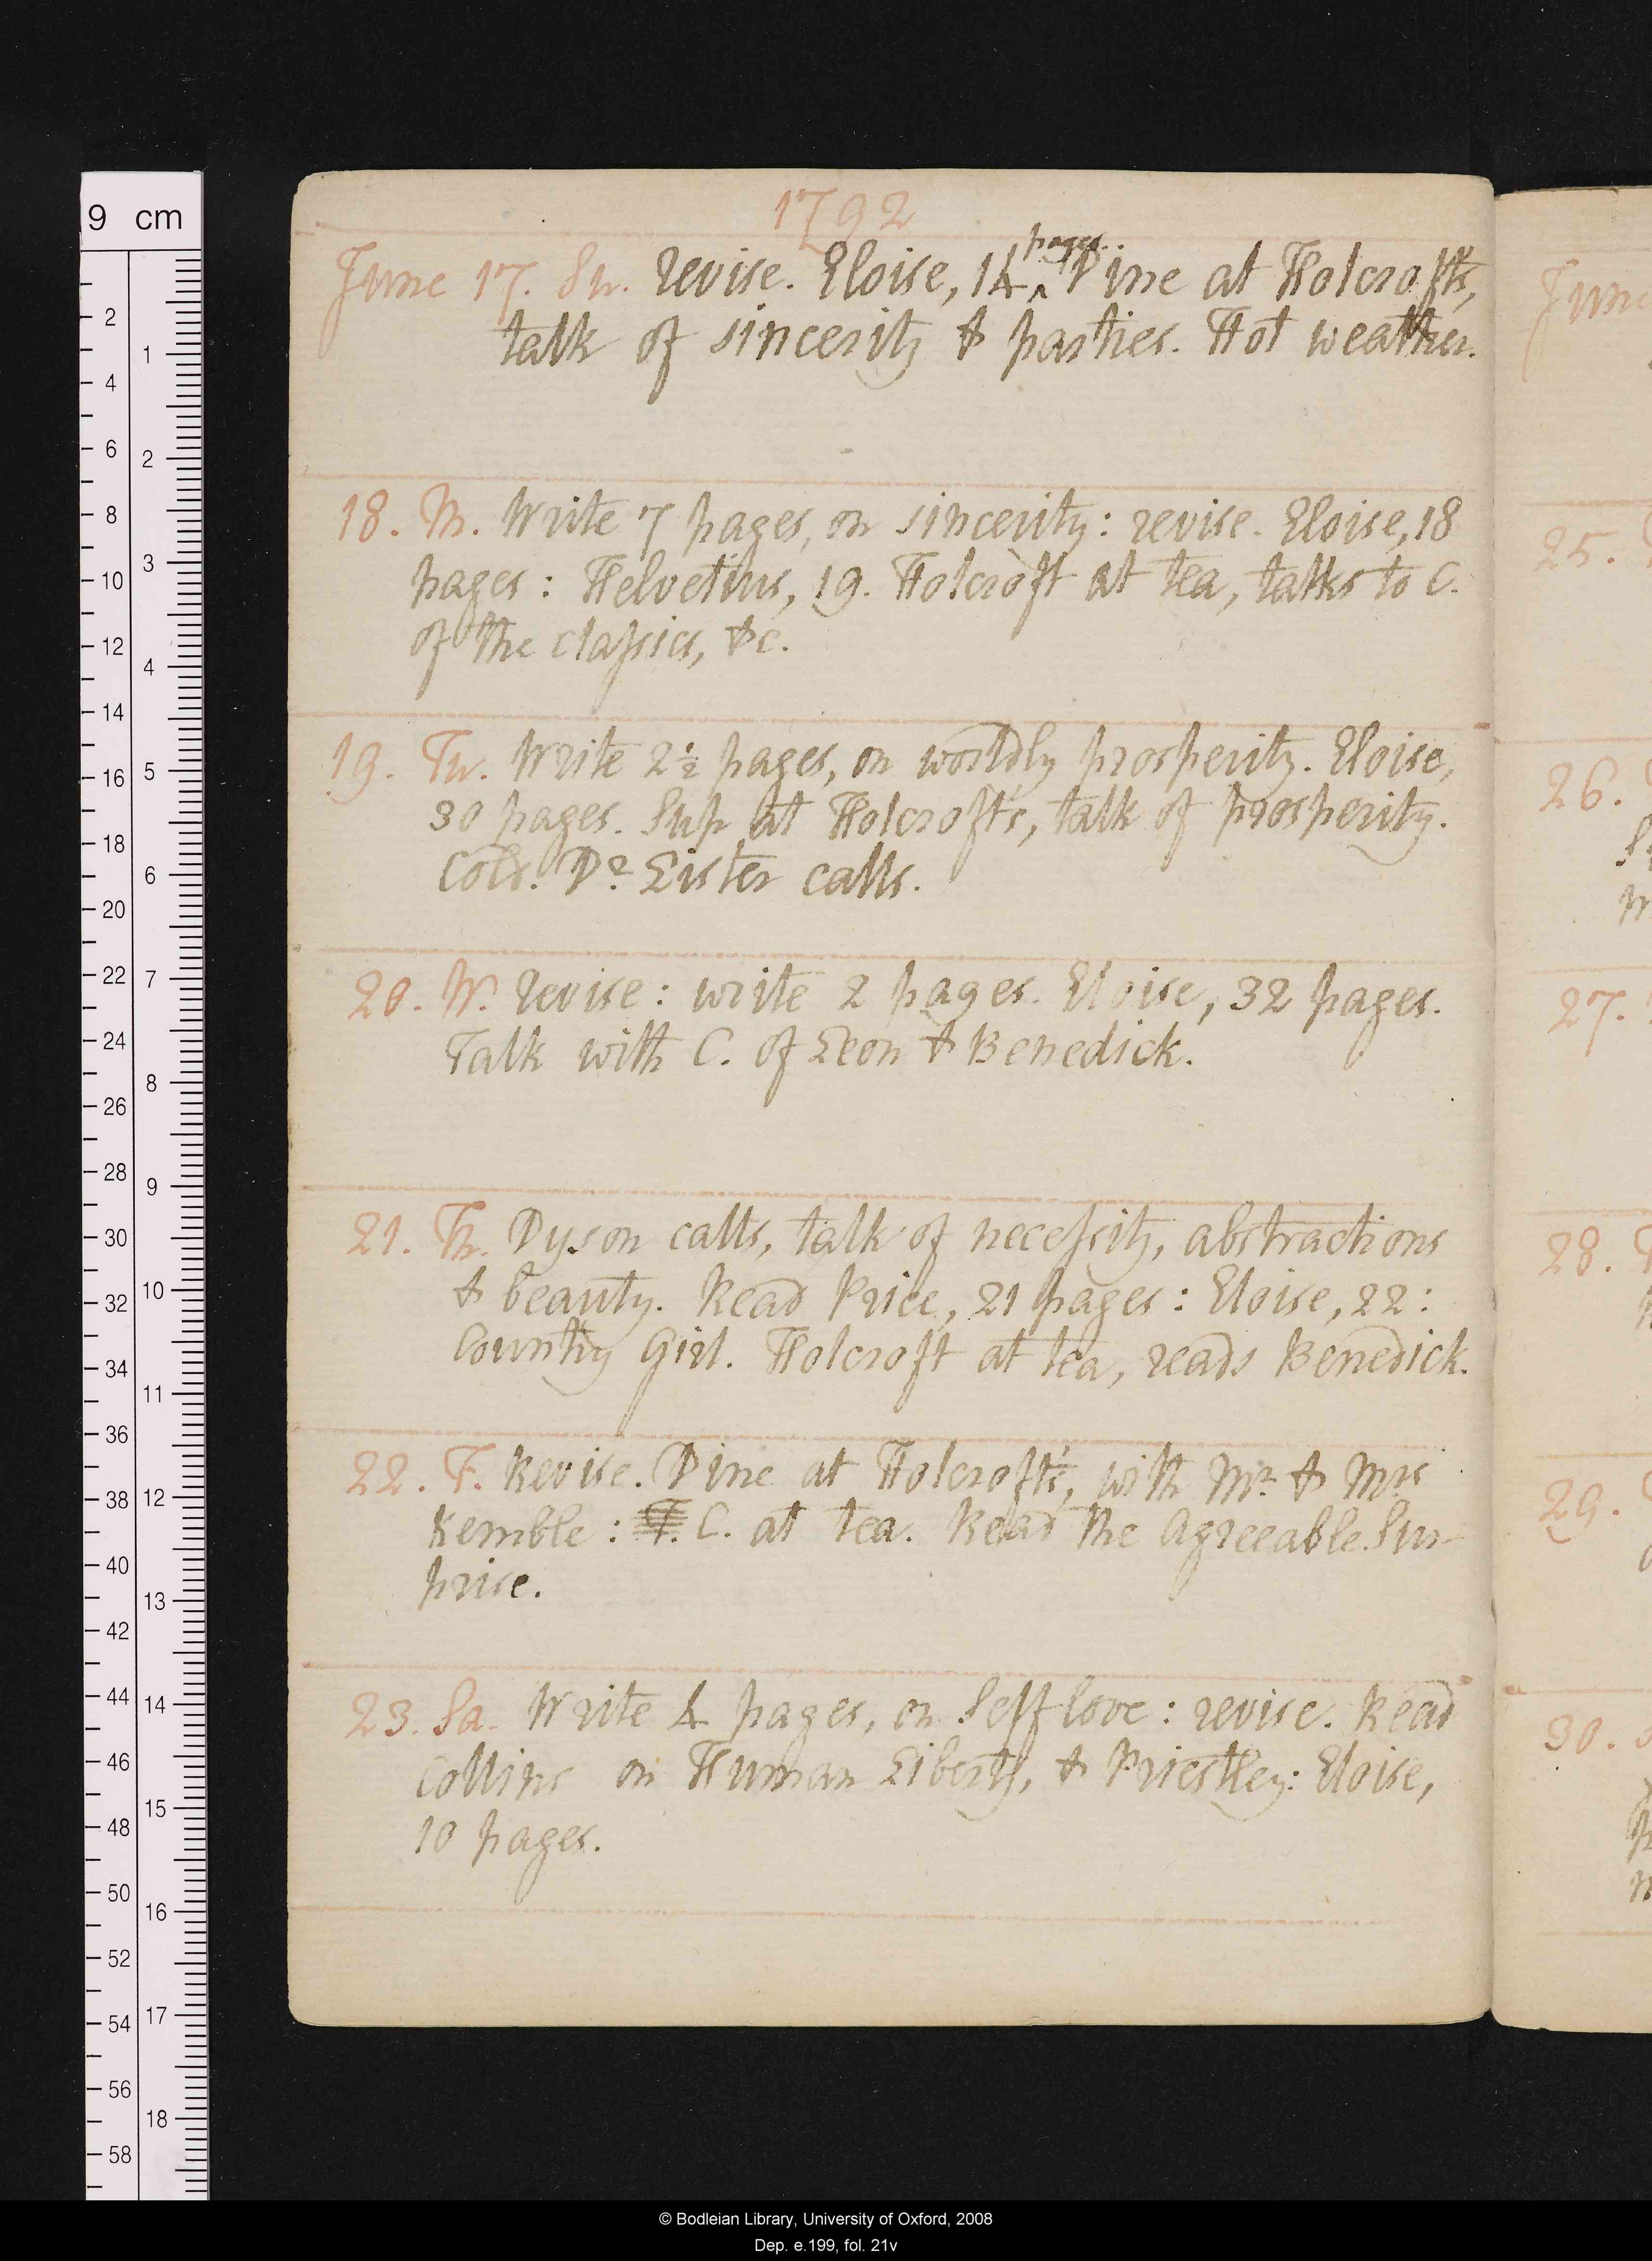 1792
June 17. Su. Revise. Eloise, 14 ^pages. Dine at Holcroft's,
talk of sincerity & parties. Hot weather.
18. M. Write 7 pages, on sincerity: revise. Eloise, 18
pages: Helvetius, 19. Holcroft at tea, talks to C.
of the classics, &c.
19. Tu. Write 2½ pages, on worldly prosperity. Eloise,
30 pages. Sup at Holcroft's, talk of prosperity.
Cold. Dr Lister calls.
20. W. Revise: write 2 pages. Eloise, 32 pages.
Talk with C. of Leon & Benedick.
21. Th. Dyson calls, talk of necessity, abstractions
& beauty. Read Price, 21 pages: Eloise, 22:
Country Girl. Holcroft at tea, reads Benedick.
22. F. Revise. Dine at Holcroft's, with Mr & Mrs
Kemble: C. at tea. Read the Agreeable Sur-
prise.
23. Sa. Write 4 pages, on Self love: revise. Read
Collins on Human Liberty, & Priestley: Eloise,
10 pages.
June
25.
26.
27.
28.
29.
30.
9 cm
2
4
6
8
10
12
14
16
18
20
22
24
26
28
30
32
34
36
38
40
42
44
46
48
50
52
54
56
58
1
2
3
4
5
6
7
8
9
10
11
12
13
14
15
16
17
18
© Bodleian Library, University of Oxford, 2008
Dep. e.199, fol. 21v